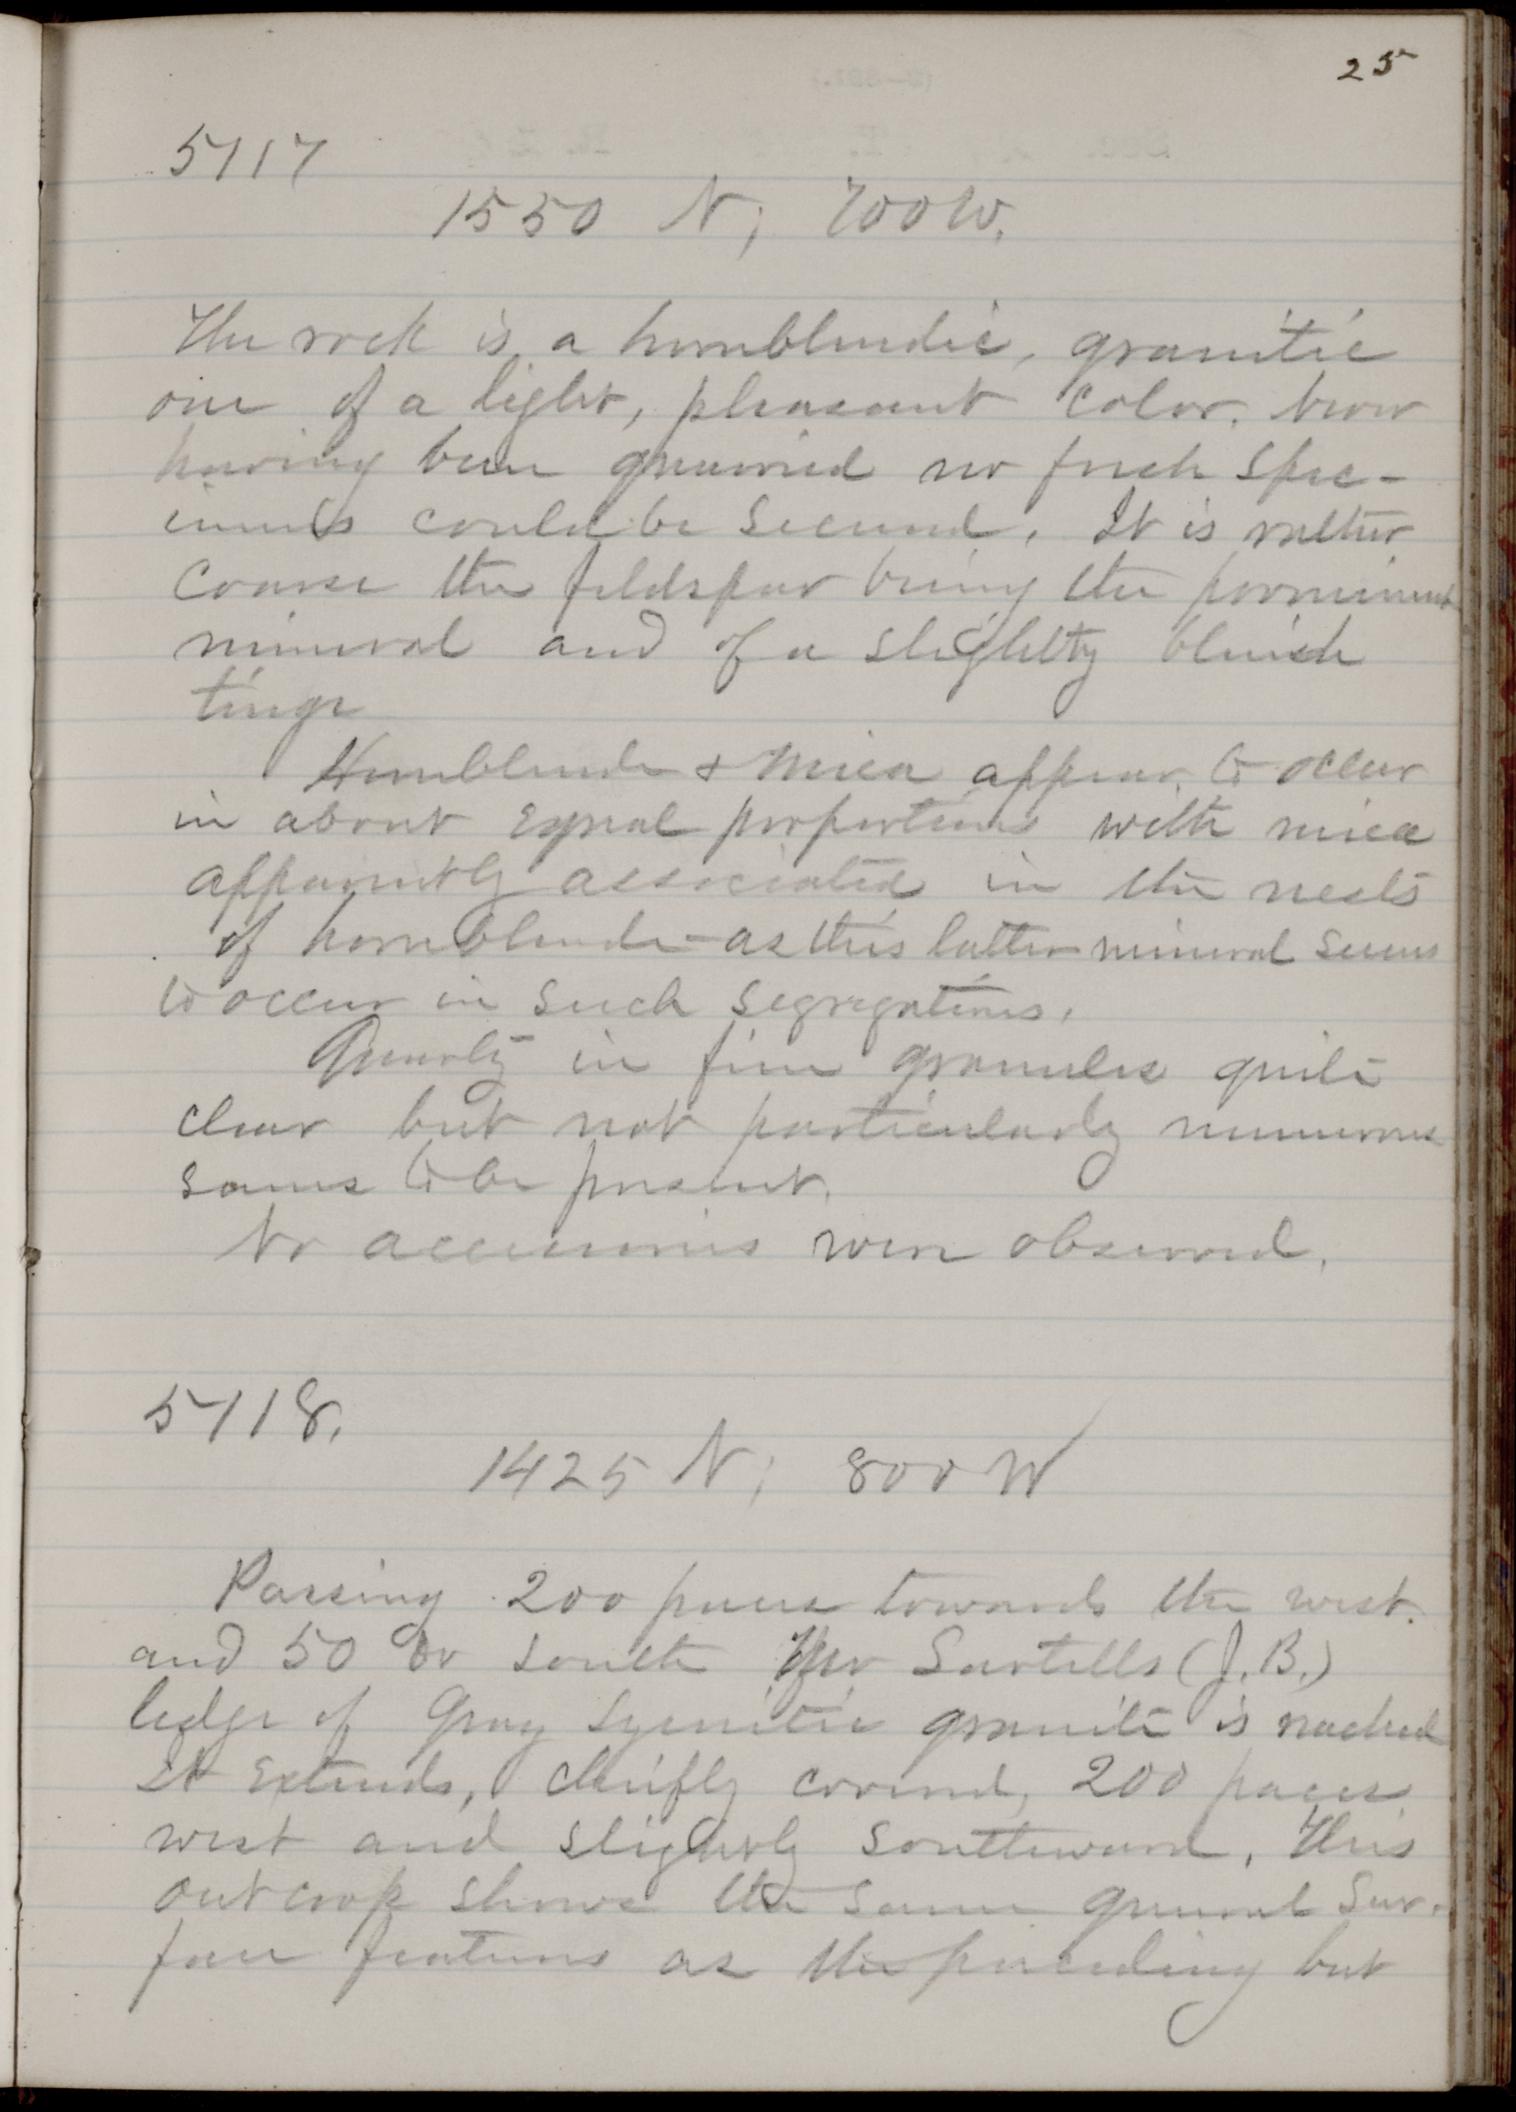 25
5117
1550 N, 700 W.
The rock is a hornblendic, granitic
one of a light, pleasant color. None
having been quarried no fresh spec-
imens could be secured. It is rather
coarse the feldspar being the prominent
mineral and of a slightly bluish
tinge
Hornblende & mica appear to occur
in about equal proportions with mica
apparently associated in the nests
of hornblende - as this latter mineral seems
to occur in such segregations.
Quartz in fine granules quite
clear but not particularly numerous
seems to be present.
No accessories were observed.
5118.
1425 N, 800 W
Passing 200 paces towards the west
and 50 or south Sartells (J.B.)
ledge of Gray Syenitic granite is reached
It extends, chiefly covered, 200 paces
west and slightly southward. This
outcrop shows the same general sur-
face features as the preceding but